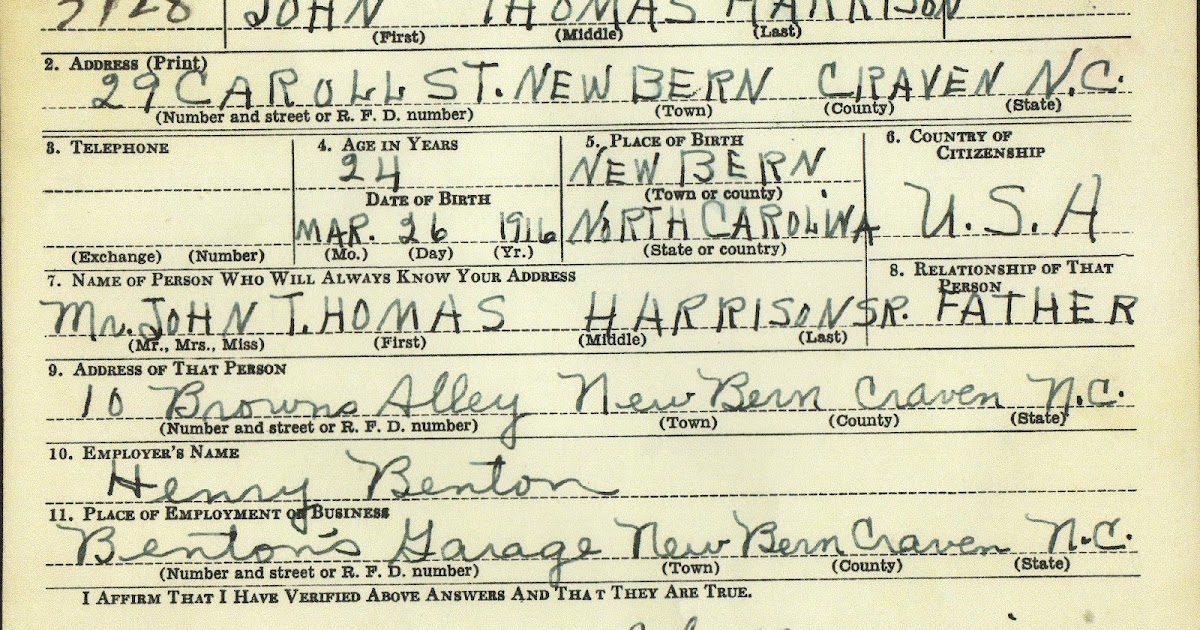 JOHN THOMAS HARRISON
(First) (Middle) (Last)
2. ADDRESS (Print)
29 CAROLL ST. NEW BERN CRAVEN N.C.
(Number and street or R. F. D. number) (Town) (County) (State)
3. TELEPHONE
(Exchange) (Number)
4. AGE IN YEARS
24
DATE OF BIRTH
MAR. 26 1916
(Mo.) (Day) (Yr.)
5. PLACE OF BIRTH
NEW BERN
(Town or county)
NORTH CAROLINA
(State or country)
6. COUNTRY OF
CITIZENSHIP
U.S.A
7. NAME OF PERSON WHO WILL ALWAYS KNOW YOUR ADDRESS
Mr. JOHN T.HOMAS HARRISON SR.
(Mr., Mrs., Miss) (First) (Middle) (Last)
8. RELATIONSHIP OF THAT
PERSON
FATHER
9. ADDRESS OF THAT PERSON
10 Browns Alley New Bern Craven N.C.
(Number and street or R. F. D. number) (Town) (County) (State)
10. EMPLOYER'S NAME
Henry Benton
11. PLACE OF EMPLOYMENT OR BUSINESS
Benton's Garage New Bern Craven N.C.
(Number and street or R. F. D. number) (Town) (County) (State)
I AFFIRM THAT I HAVE VERIFIED ABOVE ANSWERS AND THAT THEY ARE TRUE.